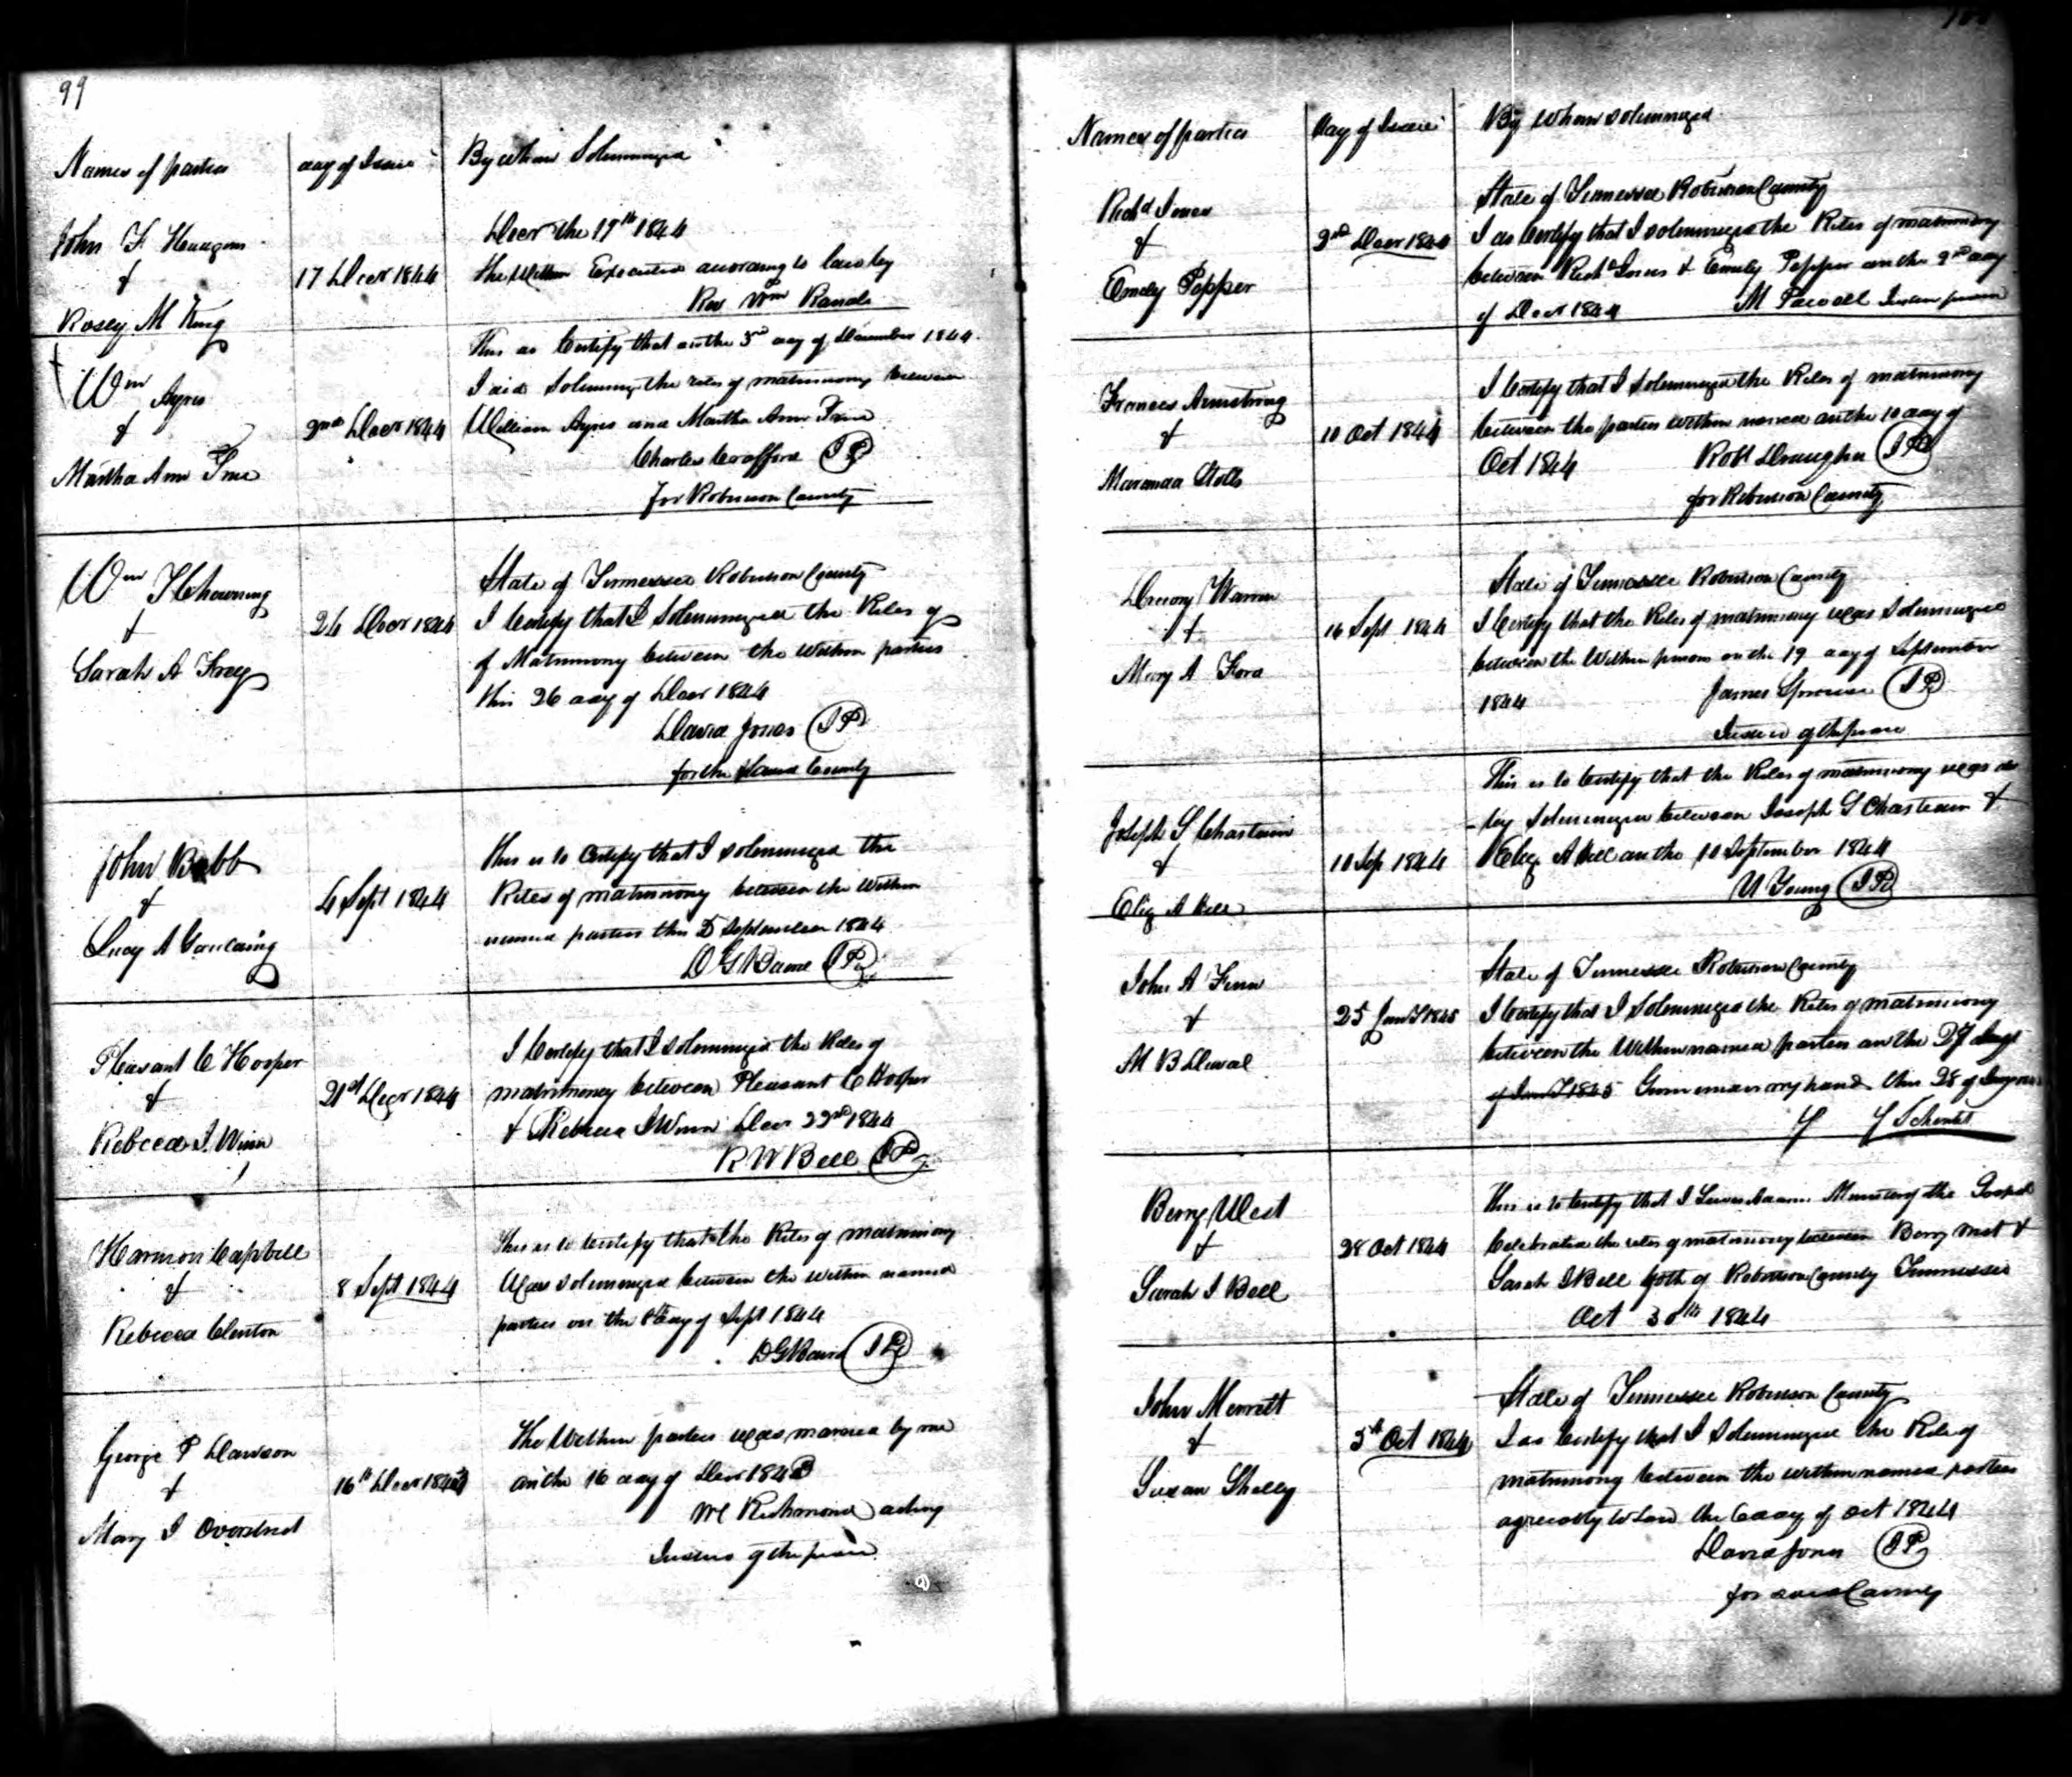 99
Names of parties
day of Issue
By whom Solemnized
John F
&
Rosey M King
17 Decr 1844
Decr the 19th 1844
The Within Executed according to law by
Rev Wm
Wm Ayres
&
Martha Ann
2nd Decr 1844
This do Certify that on the 3rd day of December 1844
I did Solemnize the rites of matrimony between
William Ayres and Martha Ann
Charles Crafford JP
for Robertson County
Wm Chowning
&
Sarah A Frey
24 Decr 1844
State of Tennessee Robertson County
I Certify that I Solemnized the Rites of
of Matrimony between the within parties
this 26 day of Decr 1844
David Jones JP
for the Said County
John Bobb
&
Lucy A
4 Sept 1844
This is to Certify that I solemnized the
Rites of matrimony between the within
named parties this 5 September 1844
D G Baird JP
Pleasant C Hooper
&
Rebecca J. Winn
21st Decr 1844
I Certify that I solemnized the Rites of
matrimoney between Pleasant C Hooper
& Rebecca J Winn Decr 22nd 1844
R W Bell JP
Harmon Capbell
&
Rebecca Clinton
8 Sept 1844
This is to Certify that the Rites of matrimony
Was solemnized between the within named
parties on the 8th day of Sept 1844
D G Baird JP
George P Dawson
&
Mary J Overstreet
16th Decr
The Within parties was married by me
on the 16 day of Decr
W Richmond acting
Justice of the peace
Names of parties
day of Issue
By whom solemnized
Richd Jones
&
Emily Pepper
2nd Decr 1844
State of Tennessee Robertson County
I do Certify that I solemnized the Rites of matrimony
between Richd Jones & Emily Pepper on the day
of Decr 1844 M Powell Justice peace
Frances Armstrong
&
Maranda Stolls
10 Oct 1844
I Certify that I Solemnized the Rites of matrimony
between the parties within named on the 10 day of
Oct 1844 Robt Draughn JP
for Robertson County
Drury Warren
&
Mary A Ford
16 Sept 1844
State of Tennessee Robertson County
I Certify that the Rites of matrimony was Solemnized
between the Within persons on the 19 day of September
1844 James Sprouse JP
Justice of the peace
Joseph S Chastain
&
Eliz A Bell
10 Sep 1844
This is to Certify that the Rites of matrimony was du
-ly Solemnized between Joseph S Chastain &
Eliz A Bell on the 10 September 1844
U Young JP
John A Finn
&
M B Duval
25 Jany 1845
State of Tennessee Robertson County
I Certify that I Solemnized the Rites of matrimony
between the Within named parties on the 27 day
of Jany 1845 Given under my hand this 28 of
Berry West
&
Sarah J Bell
28 Oct 1844
This is to Certify that I Minister of the Gospel
Celebrated the rites of matrimony between Berry West &
Sarah J Bell both of Robertson County Tennessee
Oct 30th 1844
John Merritt
&
Susan Shelly
5th Oct 1844
State of Tennessee Robertson County
I do Certify that I Solemnized the Rites of
matrimony between the within named parties
agreeably to Law the 6 day of Oct 1844
David Jones JP
for said County